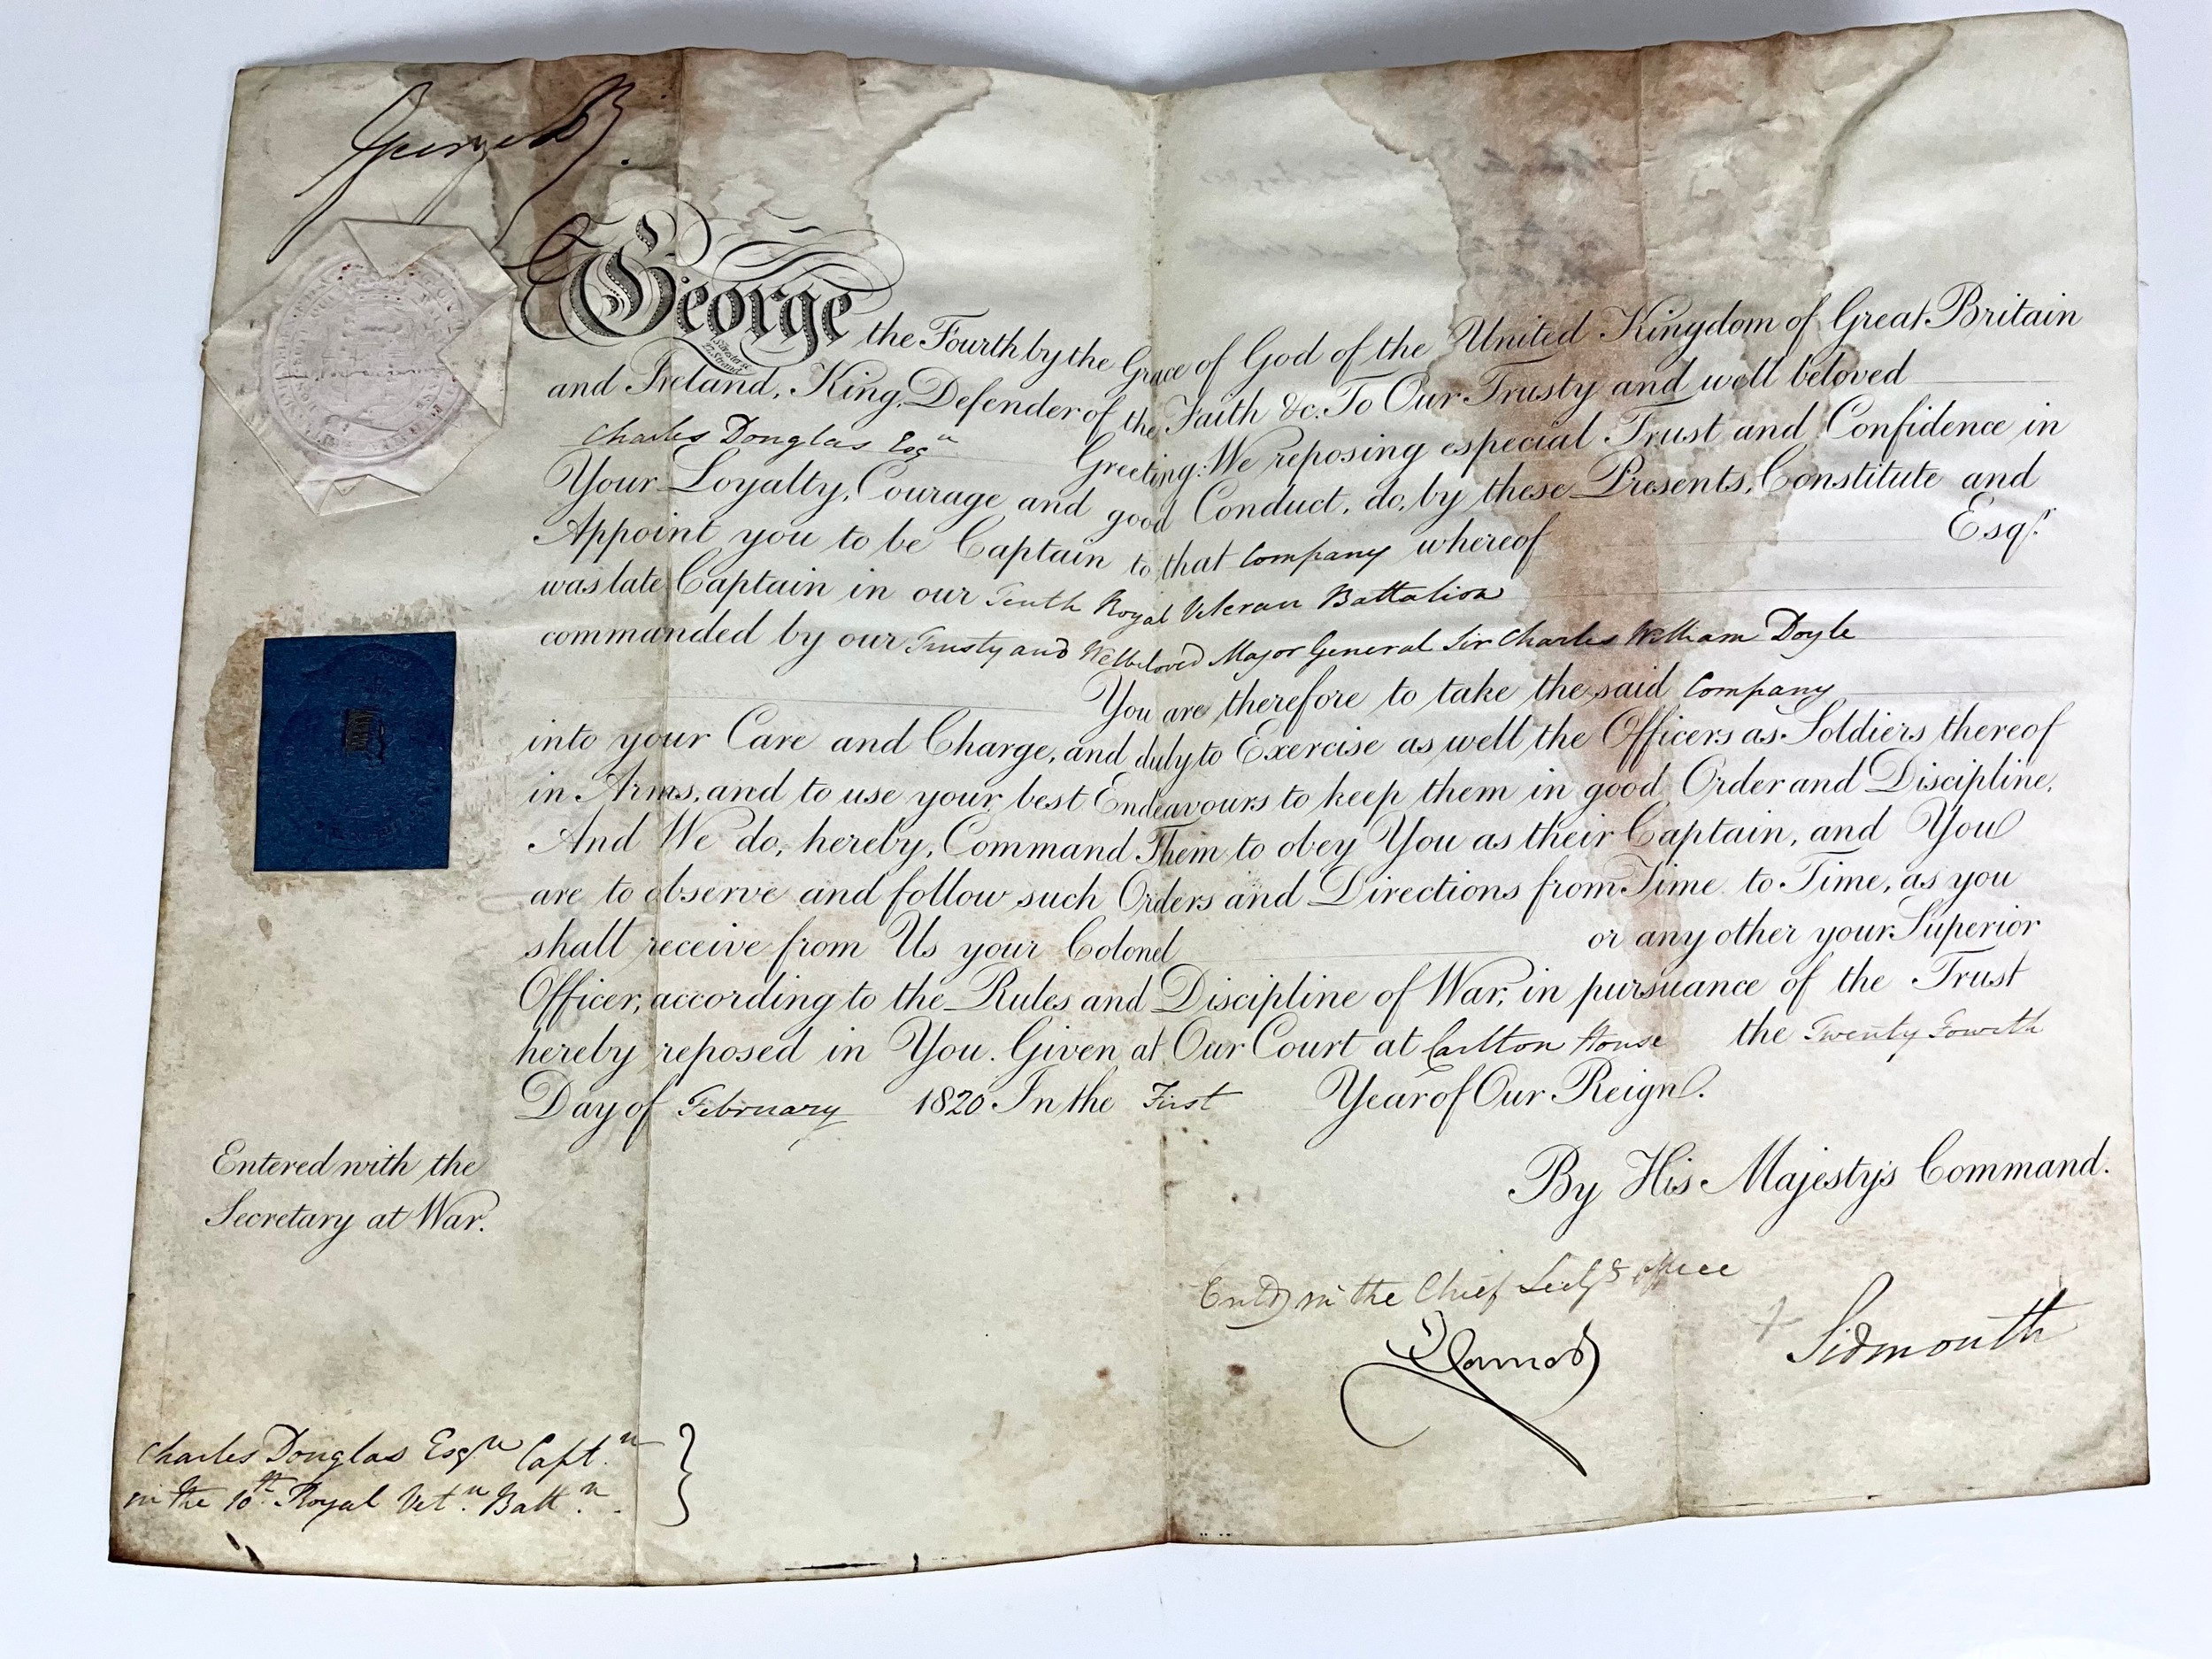 George R.
George the Fourth by the Grace of God of the United Kingdom of Great Britain
and Ireland, King, Defender of the Faith &c. To Our Trusty and well beloved
Charles Douglas Esqr Greeting: We reposing especial Trust and Confidence in
Your Loyalty, Courage and good Conduct, do, by these Presents, Constitute and
Appoint you to be Captain to that Company whereof Esqr.
was late Captain in our Tenth Royal Veteran Battalion
commanded by our Trusty and Welbeloved Major General Sir Charles William Doyle
You are therefore to take the said Company
into your Care and Charge, and duly to Exercise as well the Officers as Soldiers thereof
in Arms, and to use your best Endeavours to keep them in good Order and Discipline,
And We do, hereby, Command Them to obey You as their Captain, and You
are to observe and follow such Orders and Directions from Time to Time, as you
shall receive from Us your Colonel or any other your Superior
Officer, according to the Rules and Discipline of War, in pursuance of the Trust
hereby reposed in You. Given at Our Court at Carlton House the Twenty Fourth
Day of February 1820 In the First Year of Our Reign.
By His Majesty's Command.
Entered with the
Secretary at War.
Entd in the Chief Secys Office
Sidmouth
Charles Douglas Esqr Captn
in the 10th Royal Vetn Battn
}